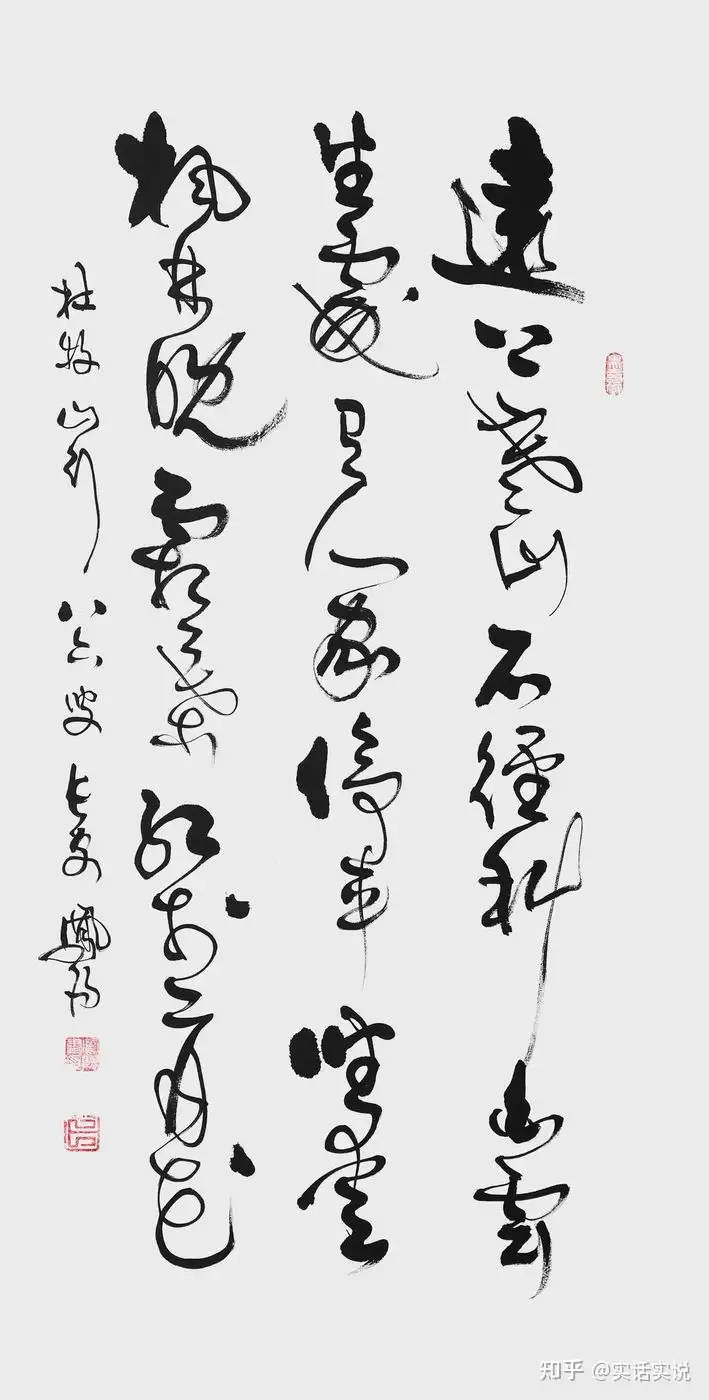 遠上寒山石徑斜白雲
生處有人家停車坐愛
楓林晚霜葉紅於二月花
杜牧山行 八六叟長安鳳
知乎 @实话实说